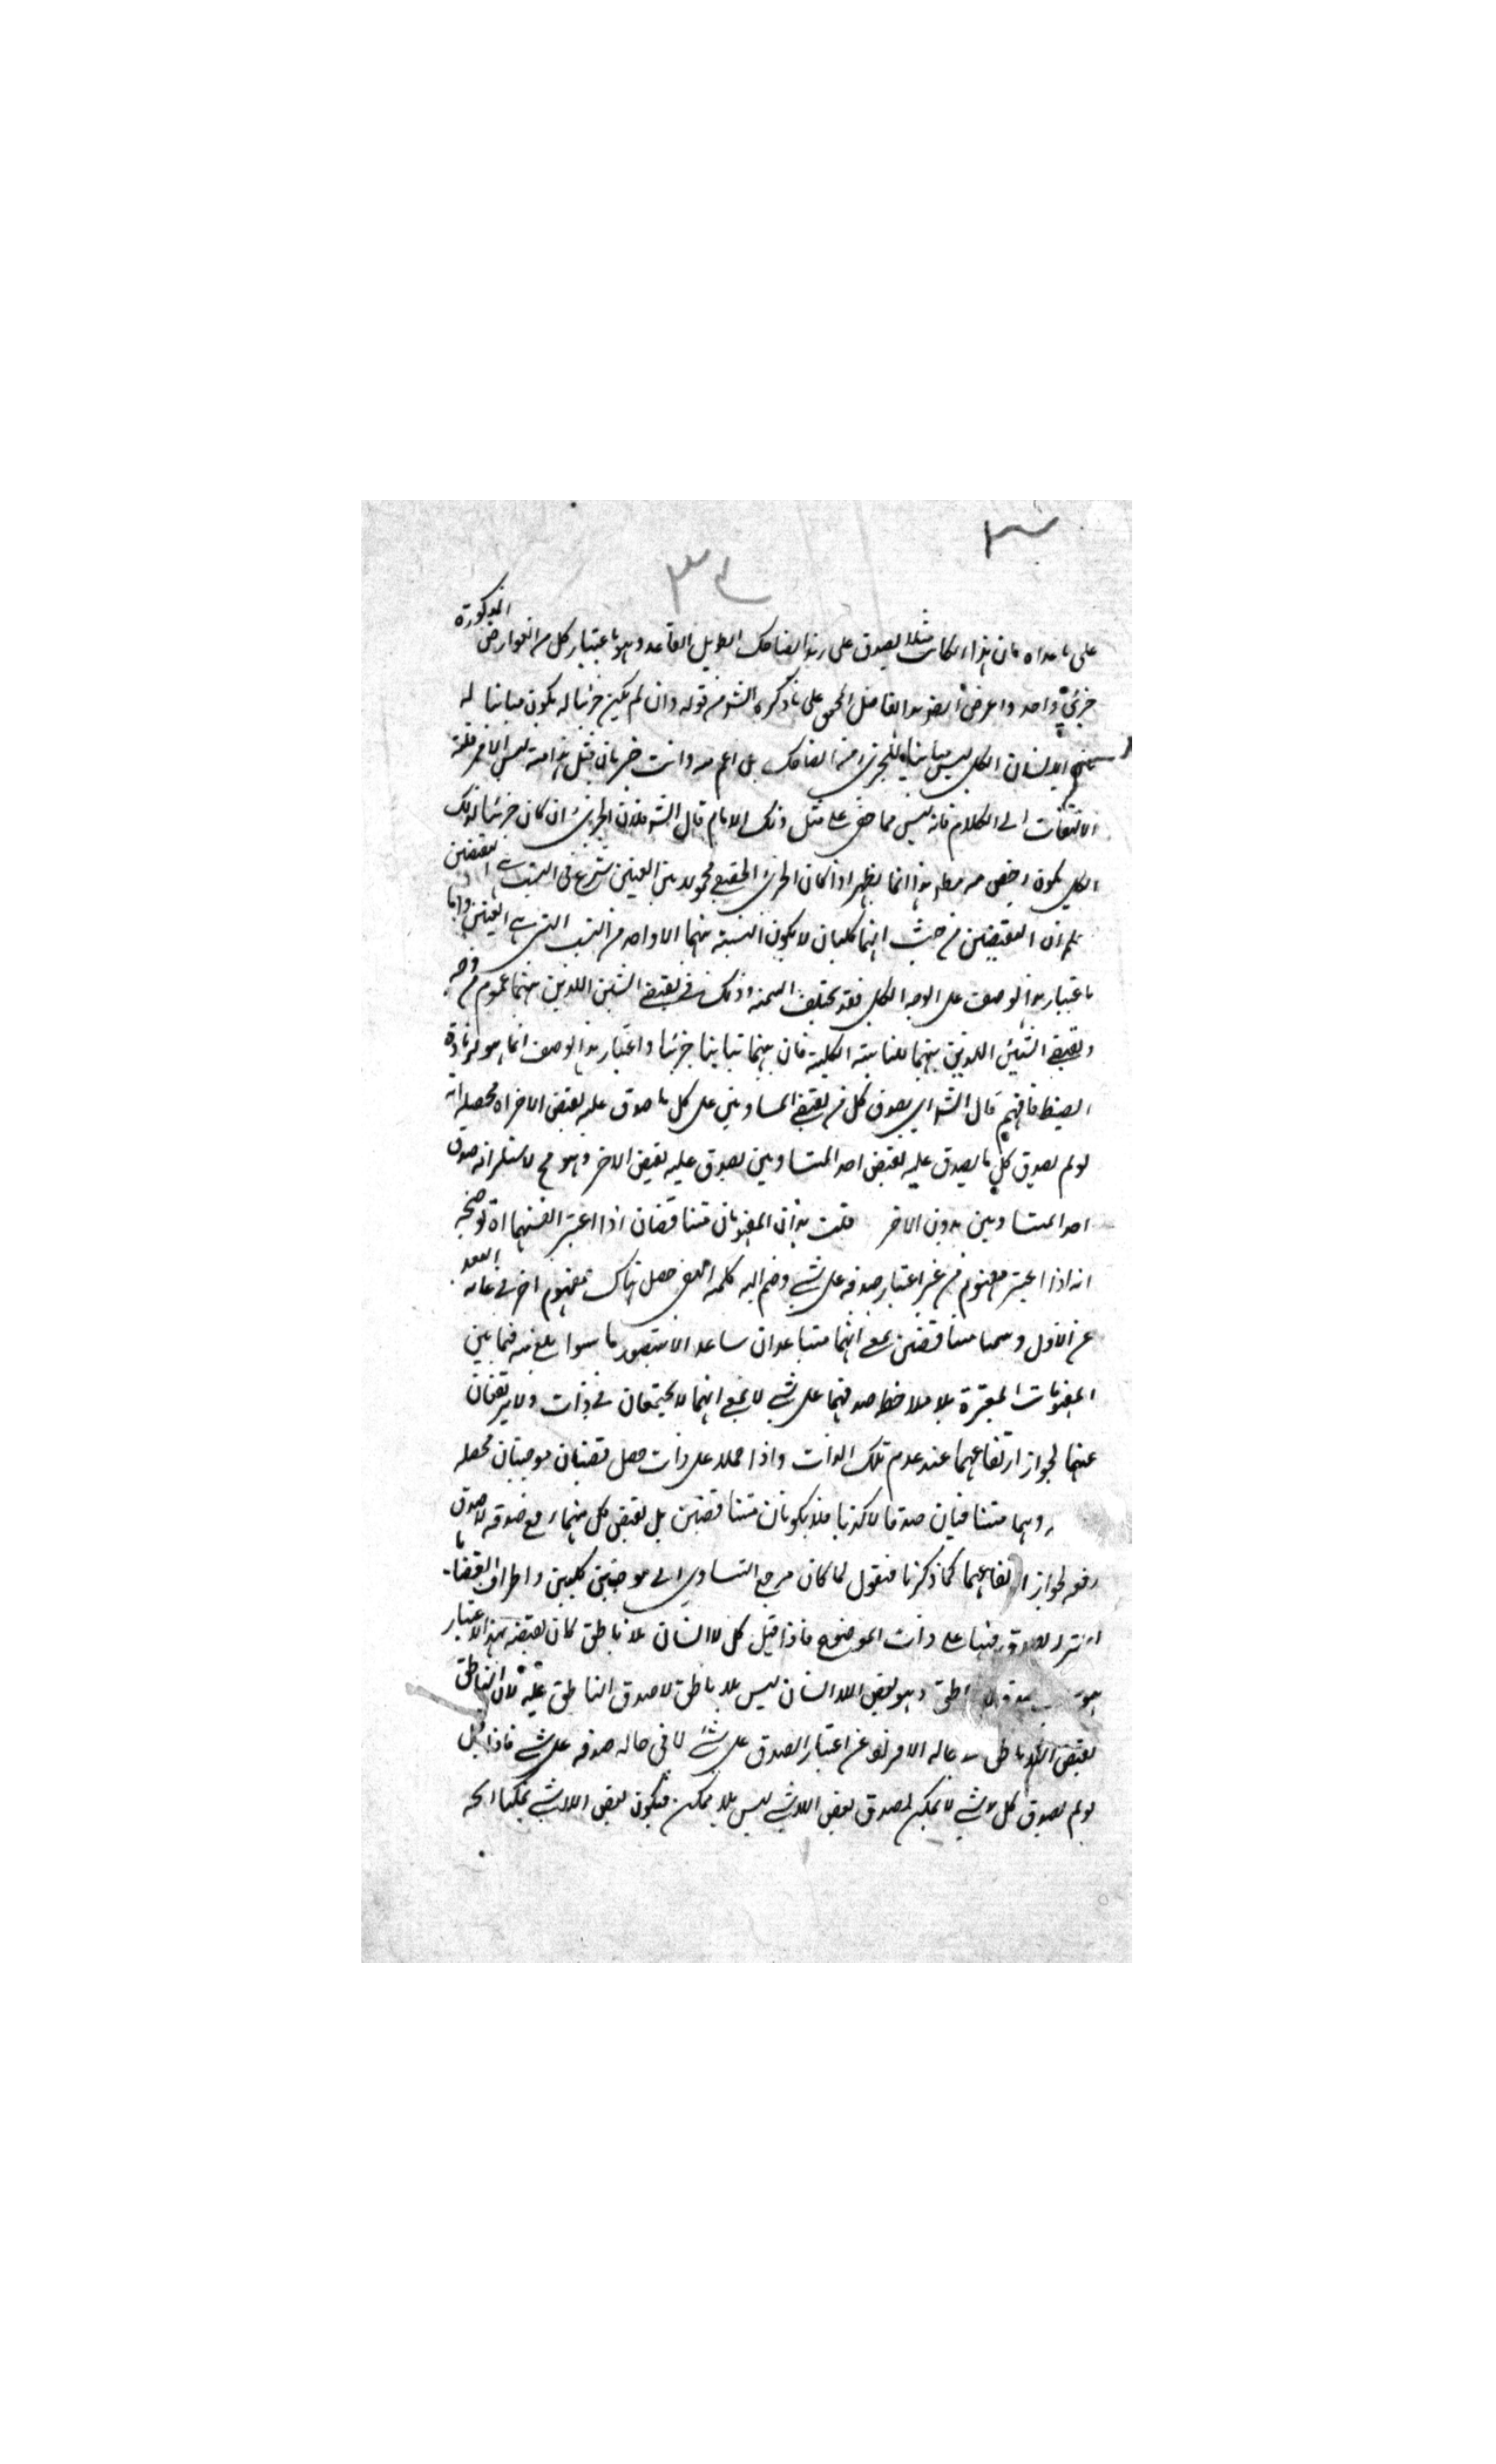 ٣٤
على ما عداه فان هذا الكاتب مثلا يصدق على هذا الضاحك الطويل القاعد وهو باعتبار كل من العوارض المذكورة
جزئي واحد واعرض الفاضل المحشي على ما ذكره الش من قوله وان لم يكن جزئيا له يكون مباينا له
الانسان الكلي ليس مباينا للجزئي من الضاحك بل اعم منه وانت خبير بان مثل هذا منه ليس الا من قلة
الالتفات الى الكلام فانه ليس مما خفي على مثل ذلك الامام قال الش فلان الجزئي ان كان جزئيا لذلك
الكلي يكون اخص منه مط هذا انما يظهر اذا كان الجزئي الحقيقي محمولا بين العينين شرع في النسب بين النقيضين
اعلم ان النقيضين من حيث انهما كليان لا يكون النسبة بينهما الا واحد من النسب التي بين العينين واما
باعتبار هذا الوصف على الوجه الكلي فقد يختلف النسبة وذلك في نقيضي الشيئين اللذين بينهما عموم من وجه
ونقيضي الشيئين اللذين بينهما المباينة الكلية فان بينهما تباينا جزئيا واعتبار هذا الوصف انما هو لزيادة
الضبط فافهم قال الش اي يصدق كل من نقيضي المتساويين على كل ما صدق عليه نقيض الاخر اه محصله انه
لو لم يصدق كل ما يصدق عليه نقيض احد المتساويين يصدق عليه نقيض الاخر وهو مح لاستلزامه صدق
احد المتساويين بدون الاخر قلت هذان المفهومان متناقضان اذا اعتبر انفسهما اه توضيحه
انه اذا اعتبر مفهوم من غير اعتبار صدقه على شي وضم اليه كلمة النفي حصل هناك مفهوم اخر في غاية البعد
عن الاول وسميا متناقضين بمعنى انهما متباعدان تباعدا لا يتصور ما سواه ابلغ منه فيما بين
المفهومات المعتبرة بلا ملاحظة صدقهما على شي لا بمعنى انهما لا يجتمعان في ذات ولا يرتفعان
عنها لجواز ارتفاعهما عند عدم تلك الذات واذا حملا على ذات حصل قضيتان موجبتان محصلة
وهما متنافيان صدقا لا كذبا فلا يكونان متناقضين بل نقيض كل منهما رفع صدقه لا صدق
رفعه لجواز ارتفاعهما كما ذكرنا فنقول لما كان مرجع التساوي الى موجبتين كليتين واطراف القضايا
الصدق فيها على ذات الموضوع فاذا قيل كل لا انسان لا ناطق كان نقيضه بهذا الاعتبار
هو وهو بعض اللا انسان ليس بلا ناطق لا صدق الناطق عليه لان الناطق
نقيض اللا ناطق في حاله الافراد عن اعتبار الصدق على شي لا في حاله صدقه على شي فاذا قيل
لو لم يصدق كل لا شي لا ممكن لصدق بعض اللاشي ليس بلا ممكن فيكون بعض اللاشي ممكنا الخ